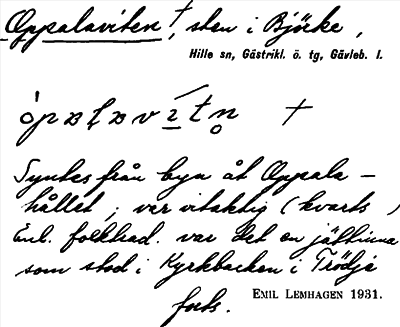 Oppalaviten †, sten i Björke,
Hille sn, Gästrikl. ö. tg, Gävleb. l.
†
Syntes från byn åt Oppala-
hållet; var vitaktig (kvarts)
Enl. folktrad. var det en jättinna
som stod i Kyrkbacken i Trödje
EMIL LEMHAGEN 1931.
forts.